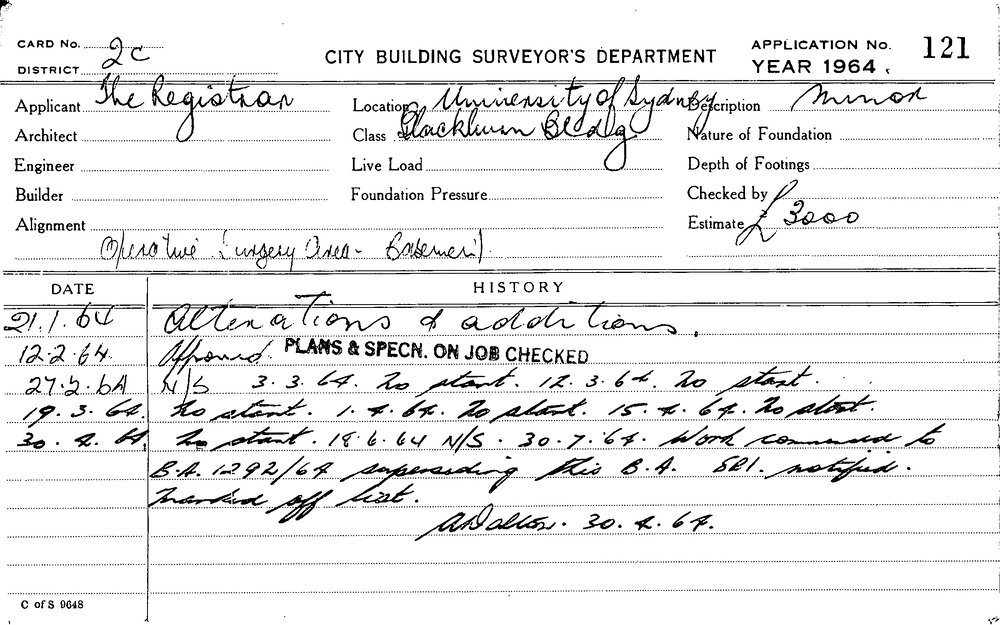 CARD No. 2c
DISTRICT
CITY BUILDING SURVEYOR'S DEPARTMENT
APPLICATION No. 121
YEAR 1964
Applicant The Registrar
Location University of Sydney
Description Minor
Architect
Class Blackburn Bldg
Nature of Foundation
Engineer
Live Load
Depth of Footings
Builder
Foundation Pressure
Checked by
Alignment
Estimate £ 3000
Operative Surgery Area - Basement).
DATE HISTORY
21.1.64 Alterations & additions.
12.2.64. Approved. PLANS & SPECN. ON JOB CHECKED
27.2.64 N/S 3.3.64. No start. 12.3.64. No start.
19.3.64. No start. 1.4.64. No start. 15.4.64. No start.
30.4.64. No start. 18.6.64 N/S. 30.7.64. Work commenced to
B.A. 1292/64 superseding this B.A. notified.
Marked off list.
30.4.64.
C of S 9648